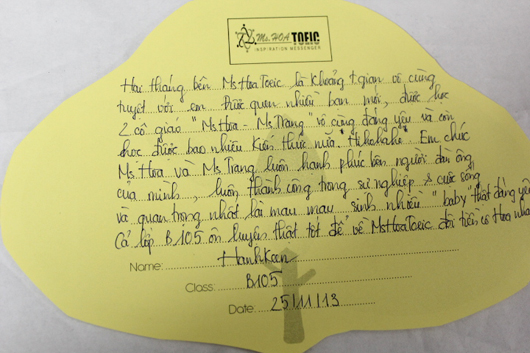 Ms. HOA TOEIC
INSPIRATION MESSENGER
Hai tháng bên MsHoaToeic là khoảng t.gian vô cùng
tuyệt với em. Được quen nhiều bạn mới, được học
2 cô giáo "Ms Hoa - Ms Trang" vô cùng đáng yêu và còn
học được bao nhiêu kiến thức nữa. "Hihohaho" Em chúc
Ms Hoa và Ms Trang luôn hạnh phúc bên người đàn ông
của mình, luôn thành công trong sự nghiệp & cuộc sống
và quan trọng nhất là mau mau sinh nhiều "baby" thật đáng yêu
Cả lớp B105 ôn luyện thật tốt để về MsHoaToeic đòi tiền cô Hoa nha
Name: HanhKeen
Class: B105
Date: 25/11/13